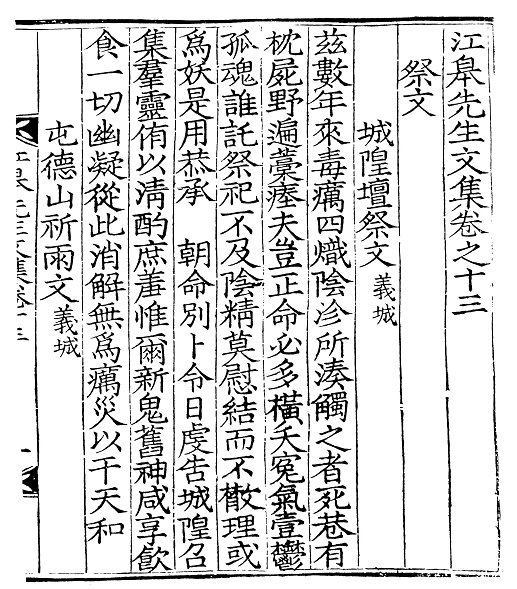 江皐先生文集卷之十三
祭文
城隍壇祭文 義城
茲數年來毒癘四熾陰沴所湊觸之者死巷有
枕屍野遍藁瘞夫豈正命必多橫夭寃氣壹鬱
孤魂誰託祭祀不及陰精莫慰結而不散理或
爲妖是用恭承 朝命別卜令日虔告城隍召
集羣靈侑以淸酌庶羞惟爾新鬼舊神咸享飮
食一切幽凝從此消解無爲癘災以干天和
屯德山祈雨文 義城